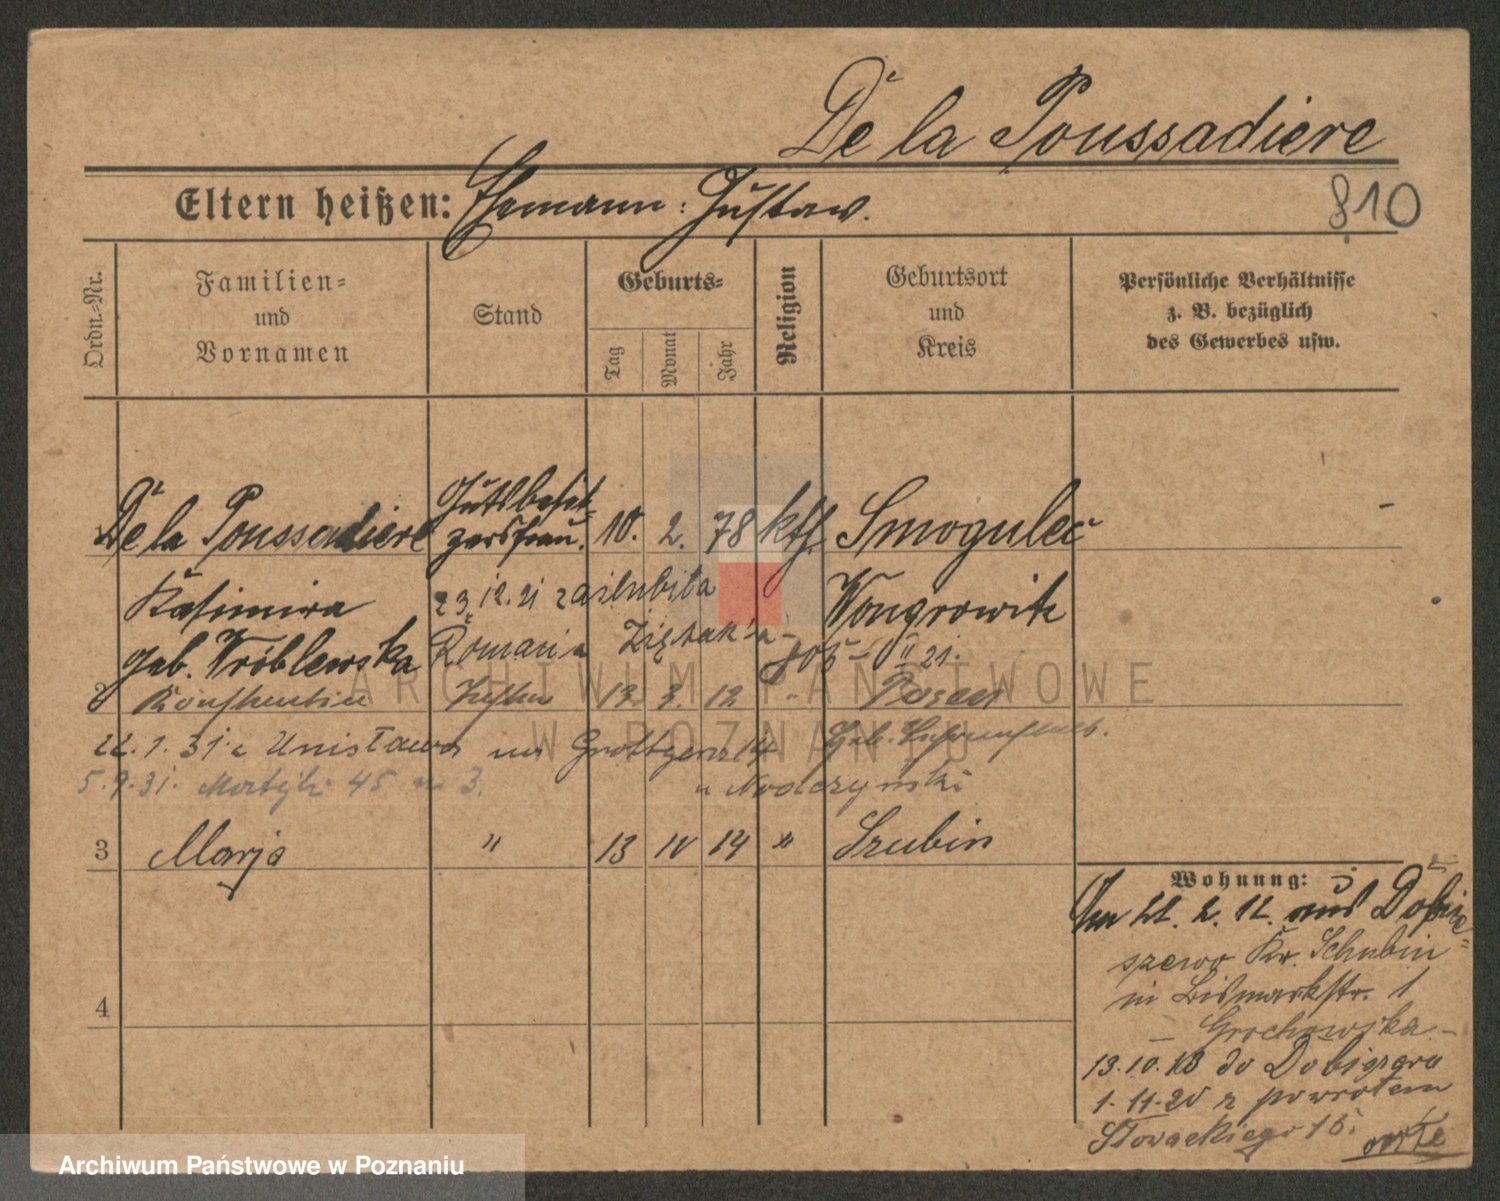 De la Poussadiere
Eltern heißen: Ehemann: Gustaw.
810
Ordn.-Nr.
Familien- und Vornamen
Stand
Geburts-
Tag
Monat
Jahr
Religion
Geburtsort und Kreis
Persönliche Verhältnisse z. B. bezüglich des Gewerbes usw.
1 De la Poussadiere Gutsbesitzersfrau. 10. 2. 78 kth. Smogulec
Kasimira 23.12.21 zaślubiła Wongrowitz
geb. Wróblewska Romana Ziętak'a
2 Konstantin 12 3. 12 " Posen
22. 1. 31. z Unisława Grottgera 14
5.9.31. Matejki 45 m 3.
3 Marja " 13 IV 14 " Szubin
4
Wohnung:
Am 21. 2. 12. aus Dobie-
szewo Kr. Schubin
in Bismarkstr. 1
– Grochowska –
13.10.18 do
1.11.20 z powrotem
Słowackiego 15.
ARCHIWUM PAŃSTWOWE
W POZNANIU
Archiwum Państwowe w Poznaniu